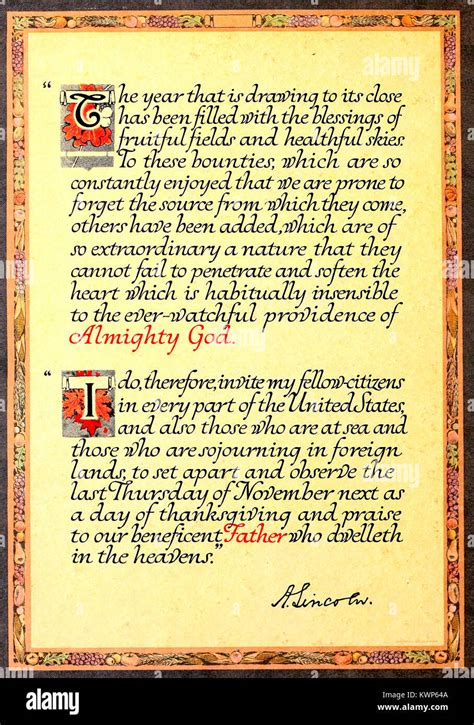 “The year that is drawing to its close
has been filled with the blessings of
fruitful fields and healthful skies.
To these bounties, which are so
constantly enjoyed that we are prone to
forget the source from which they come,
others have been added, which are of
so extraordinary a nature that they
cannot fail to penetrate and soften the
heart which is habitually insensible
to the ever-watchful providence of
Almighty God.
“I do, therefore, invite my fellow-citizens
in every part of the United States,
and also those who are at sea and
those who are sojourning in foreign
lands, to set apart and observe the
last Thursday of November next as
a day of thanksgiving and praise
to our beneficent Father who dwelleth
in the heavens.”
A. Lincoln.
alamy
Image ID: KWP64A
www.alamy.com